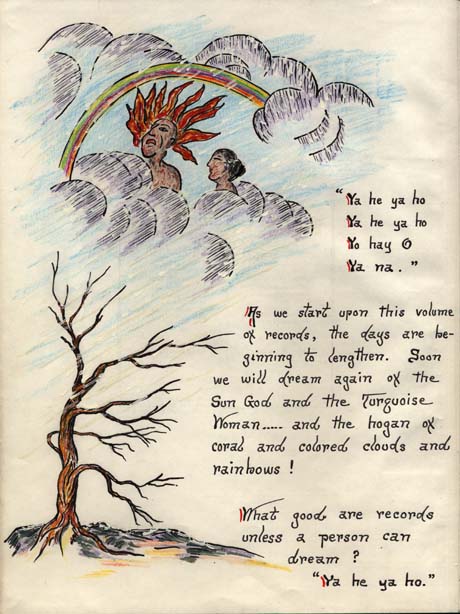 "Ya he ya ho
Ya he ya ho
Yo hay O
Ya na."
As we start upon this volume
of records, the days are be-
ginning to lengthen. Soon
we will dream again of the
Sun God and the Turquoise
Woman..... and the hogan of
coral and colored clouds and
rainbows!
What good are records
unless a person can
dream?
"Ya he ya ho."